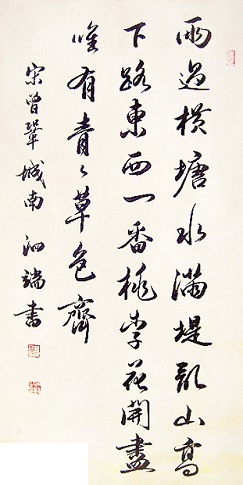 雨過橫塘水滿堤亂山高
下路東西一番桃李花開盡
唯有青々草色齊
宋曾鞏城南 泗端書